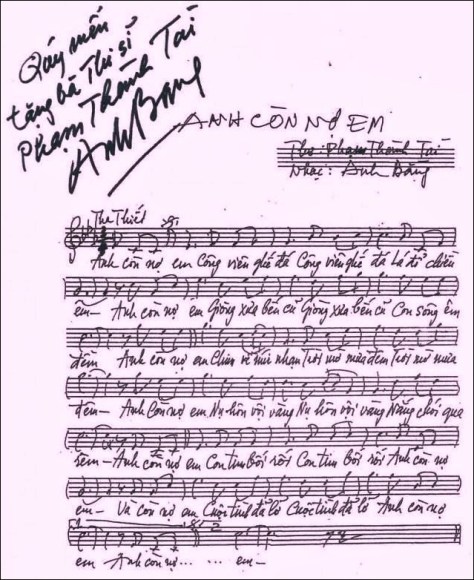 Quý mến
tặng bà Thi sĩ
Phạm Thành Tài
Anh Bằng
ANH CÒN NỢ EM
Thơ: Phạm Thành Tài
Nhạc: Anh Bằng
Tha Thiết
Anh còn nợ em Công viên ghế đá Công viên ghế đá lá đổ chiều
êm- Anh còn nợ em Giòng xưa bến cũ Giòng xưa bến cũ Con sông êm
đềm Anh còn nợ em Chim về núi nhạn Trời mờ mưa đêm Trời mờ mưa
đêm- Anh Còn nợ em Nụ hôn vội vàng Nụ hôn vội vàng Nắng chói qua
rèm- Anh còn nợ em Con tim bối rối Con tim bối rối Anh còn nợ
em- Và còn nợ em Cuộc tình đã lỡ Cuộc tình đã lỡ Anh còn nợ
em Anh còn nợ ... ... em-